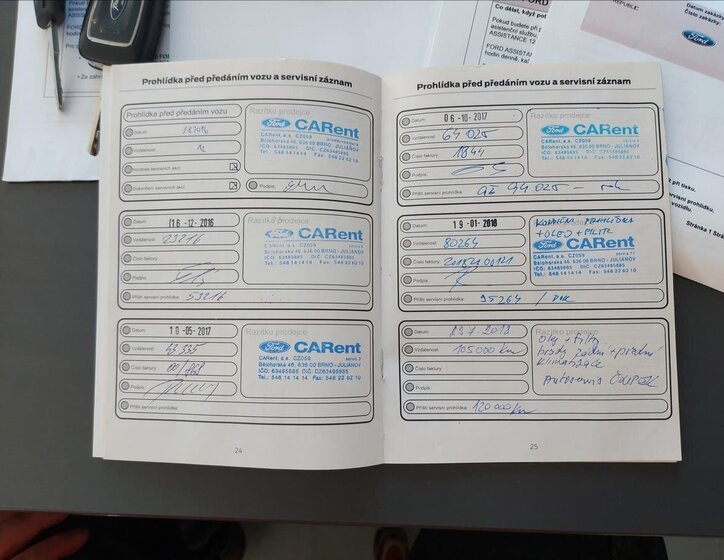 Co dělat, když pot
REPUBLIC
Datum zakázky:
Číslo zakázky:
Ford
Prohlídka před předáním vozu a servisní záznam
Prohlídka před předáním vozu
Datum:
Vzdálenost:
Kontrola servisních akcí
Dokončení servisních akcí
Razítko prodejce
Ford CARent
CARent, a.s. CZ059
Bělohorská 46, 636 00 BRNO - JULIÁNOV
IČO: 63485885 DIČ: CZ63485885
Tel.: 548 14 14 14 Fax: 548 22 62 10
Podpis:
Datum: 16-12-2016
Vzdálenost: 23216
Číslo faktury:
Podpis:
Příští servisní prohlídka: 53216
Razítko prodejce
Ford CARent
CARent, a.s. CZ059
Bělohorská 46, 636 00 BRNO - JULIÁNOV
IČO: 63485885 DIČ: CZ63485885
Tel.: 548 14 14 14 Fax: 548 22 62 10
Datum: 10-05-2017
Vzdálenost: 43 335
Číslo faktury:
Podpis:
Příští servisní prohlídka:
Razítko prodejce
Ford CARent
CARent, a.s. CZ059
Bělohorská 46, 636 00 BRNO - JULIÁNOV
IČO: 63485885 DIČ: CZ63485885
Tel.: 548 14 14 14 Fax: 548 22 62 10
24
Prohlídka před předáním vozu a servisní záznam
Datum: 06-10-2017
Vzdálenost: 64 025
Číslo faktury: 1844
Podpis:
Příští servisní prohlídka: 94 025
Razítko prodejce
Ford CARent
CARent, a.s. CZ059
Bělohorská 46, 636 00 BRNO - JULIÁNOV
IČO: 63485885 DIČ: CZ63485885
Tel.: 548 14 14 14 Fax: 548 22 62 10
Datum: 19-01-2018
Vzdálenost: 80264
Číslo faktury:
Podpis:
Příští servisní prohlídka: 95264 / rok
PROHLÍDKA
+ OLEJ + FILTR
Ford CARent
CARent, a.s. CZ059
Bělohorská 46, 636 00 BRNO - JULIÁNOV
IČO: 63485885 DIČ: CZ63485885
Tel.: 548 14 14 14 Fax: 548 22 62 10
Datum: 7 2018
Vzdálenost: 105 000 km
Číslo faktury:
Podpis:
Příští servisní prohlídka: 120 000 km
Razítko prodejce
olej + filtry
brzdy zadní + přední
klimatizace
Autoservis
25
Stránka 1